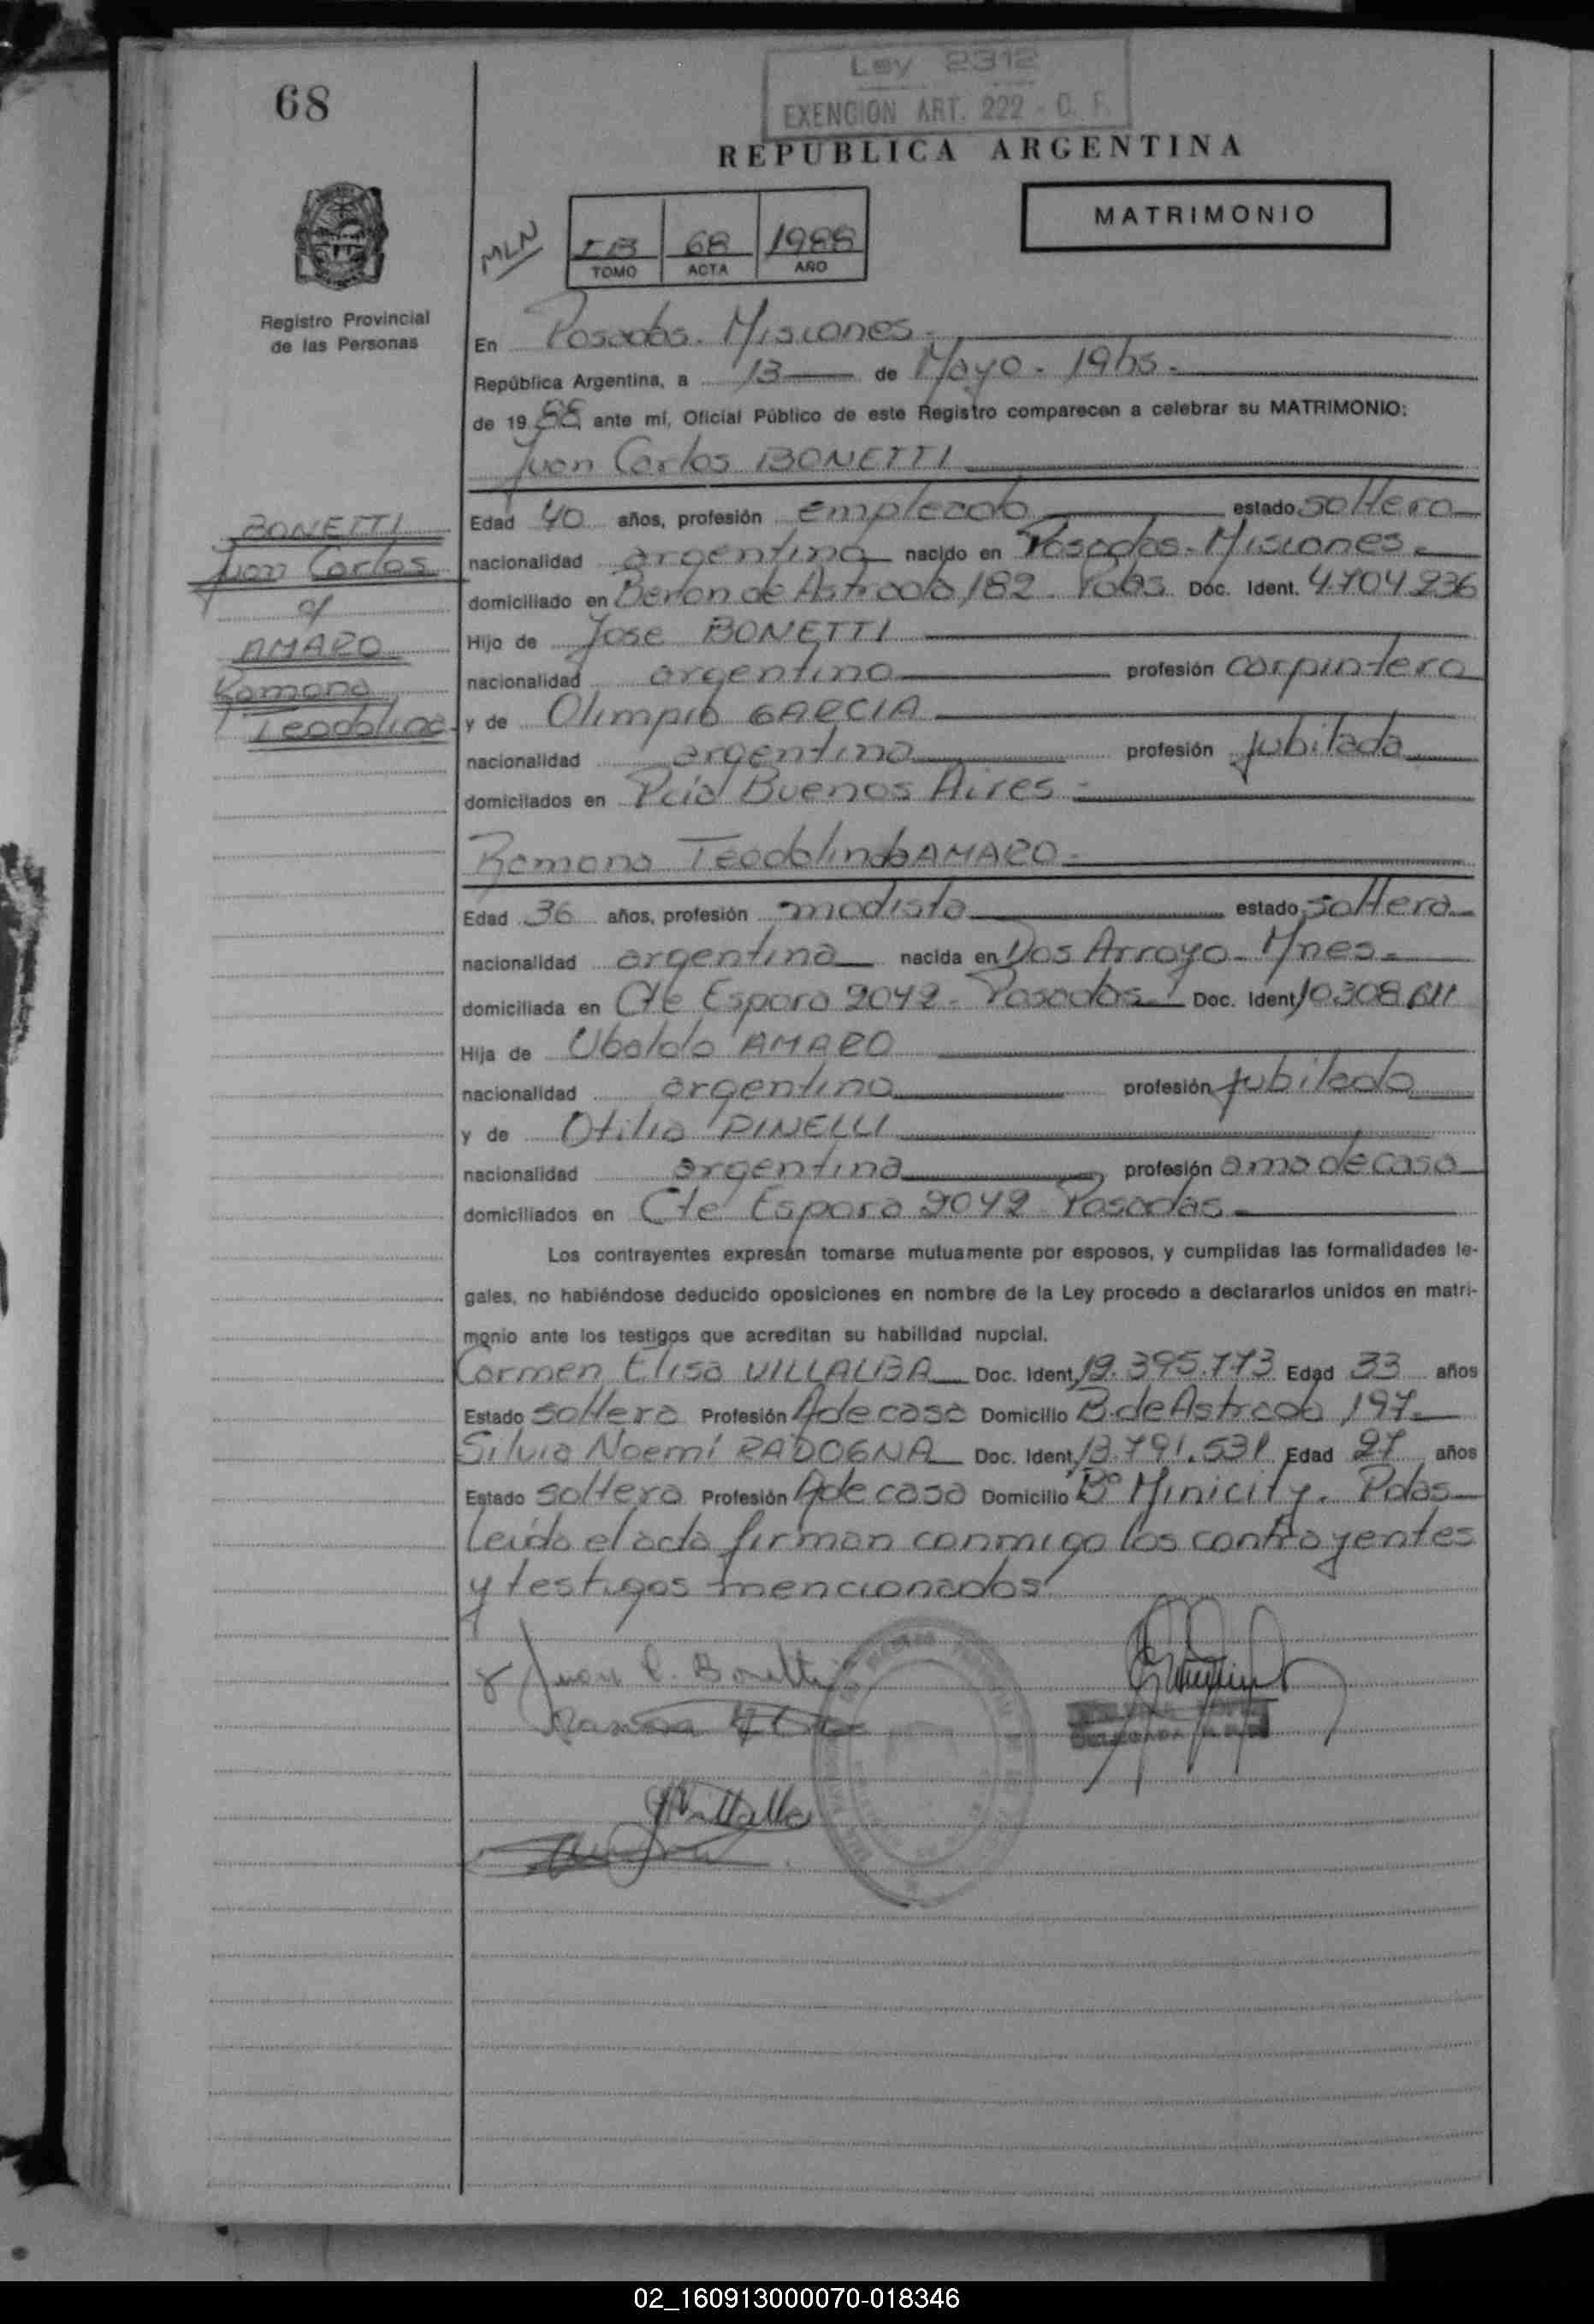 68
Ley 2312
EXENCION ART. 222 - C. F.
REPUBLICA ARGENTINA
MATRIMONIO
MLN
68 1988
TOMO ACTA AÑO
Registro Provincial
de las Personas
En Posadas. Misiones.
República Argentina, a 13 de Mayo - 19hs.
de 19 88 ante mí, Oficial Público de este Registro comparecen a celebrar su MATRIMONIO:
Juan Carlos BONETTI
Edad 40 años, profesión empleado estado soltero
BONETTI
Juan Carlos
c/
AMARO
Ramona
Teodolina
nacionalidad argentina nacido en Posadas. Misiones.
domiciliado en Beron de Astrada 182. Pdas Doc. Ident. 4.704.236
Hijo de Jose BONETTI
nacionalidad argentino profesión carpintero
y de Olimpia GARCIA
nacionalidad argentina profesión jubilada
domiciliados en Pcia Buenos Aires
Ramona Teodolinda AMARO
Edad 36 años, profesión modista estado soltera
nacionalidad argentina nacida en Dos Arroyo - Mnes.
domiciliada en Cte Espora 2042 - Posadas Doc. Ident. 10308611
Hija de Ubaldo AMARO
nacionalidad argentino profesión jubilado
y de Otilia PINELLI
nacionalidad argentina profesión ama de casa
domiciliados en Cte Espora 2042 - Posadas
Los contrayentes expresan tomarse mutuamente por esposos, y cumplidas las formalidades le-
gales, no habiéndose deducido oposiciones en nombre de la Ley procedo a declararlos unidos en matri-
monio ante los testigos que acreditan su habilidad nupcial.
Carmen Elisa VILLALBA Doc. Ident. 12.395.773 Edad 33 años
Estado soltera Profesión A de casa Domicilio B. de Astrada 197
Silvia Noemí RADOGNA Doc. Ident. 13.791.531 Edad 27 años
Estado soltera Profesión A de casa Domicilio B° Minicity. Pdas
Leída el acta firman conmigo los contrayentes
y testigos mencionados
Juan C. Bonetti
02_160913000070-018346